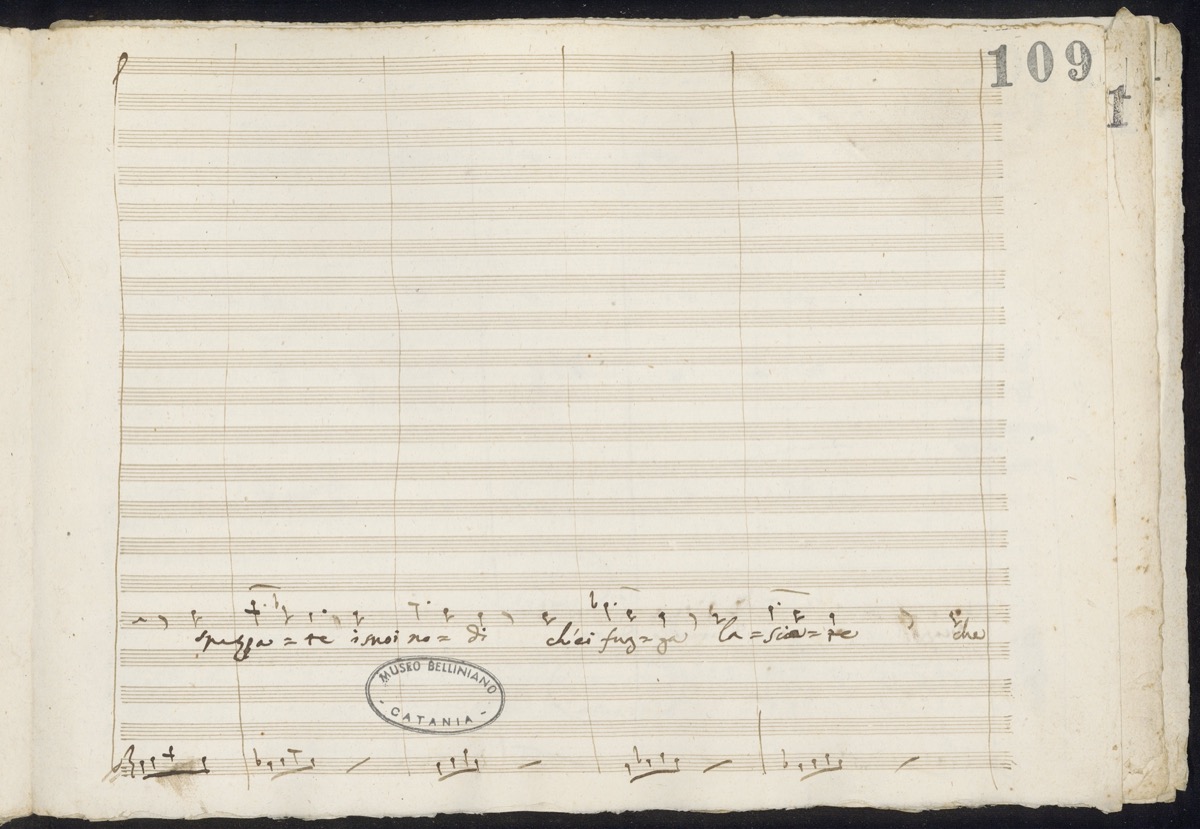 109
1
spezza = te i suoi no = di ch'ei fug = ga la = scia = te che
MUSEO BELLINIANO
- CATANIA -